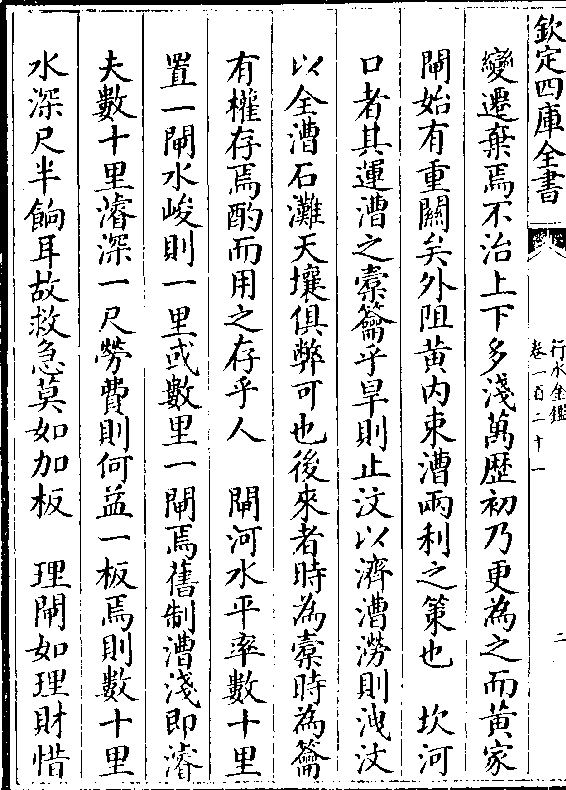 欽定四庫全書
行水金鑑
卷一百二十一
二
變遷棄焉不治上下多淺萬歴初乃更為之而黄家
閘始有重關矣外阻黄内束漕兩利之策也　坎河
口者其運漕之槖籥乎旱則止汶以濟漕澇則洩汶
以全漕石灘天壤俱弊可也後來者時為槖時為籥
有權存焉酌而用之存乎人　閘河水平率數十里
置一閘水峻則一里或數里一閘焉舊制漕淺即濬
夫數十里濬深一尺勞費則何益一板焉則數十里
水深尺半餉耳故救急莫如加板　理閘如理財惜